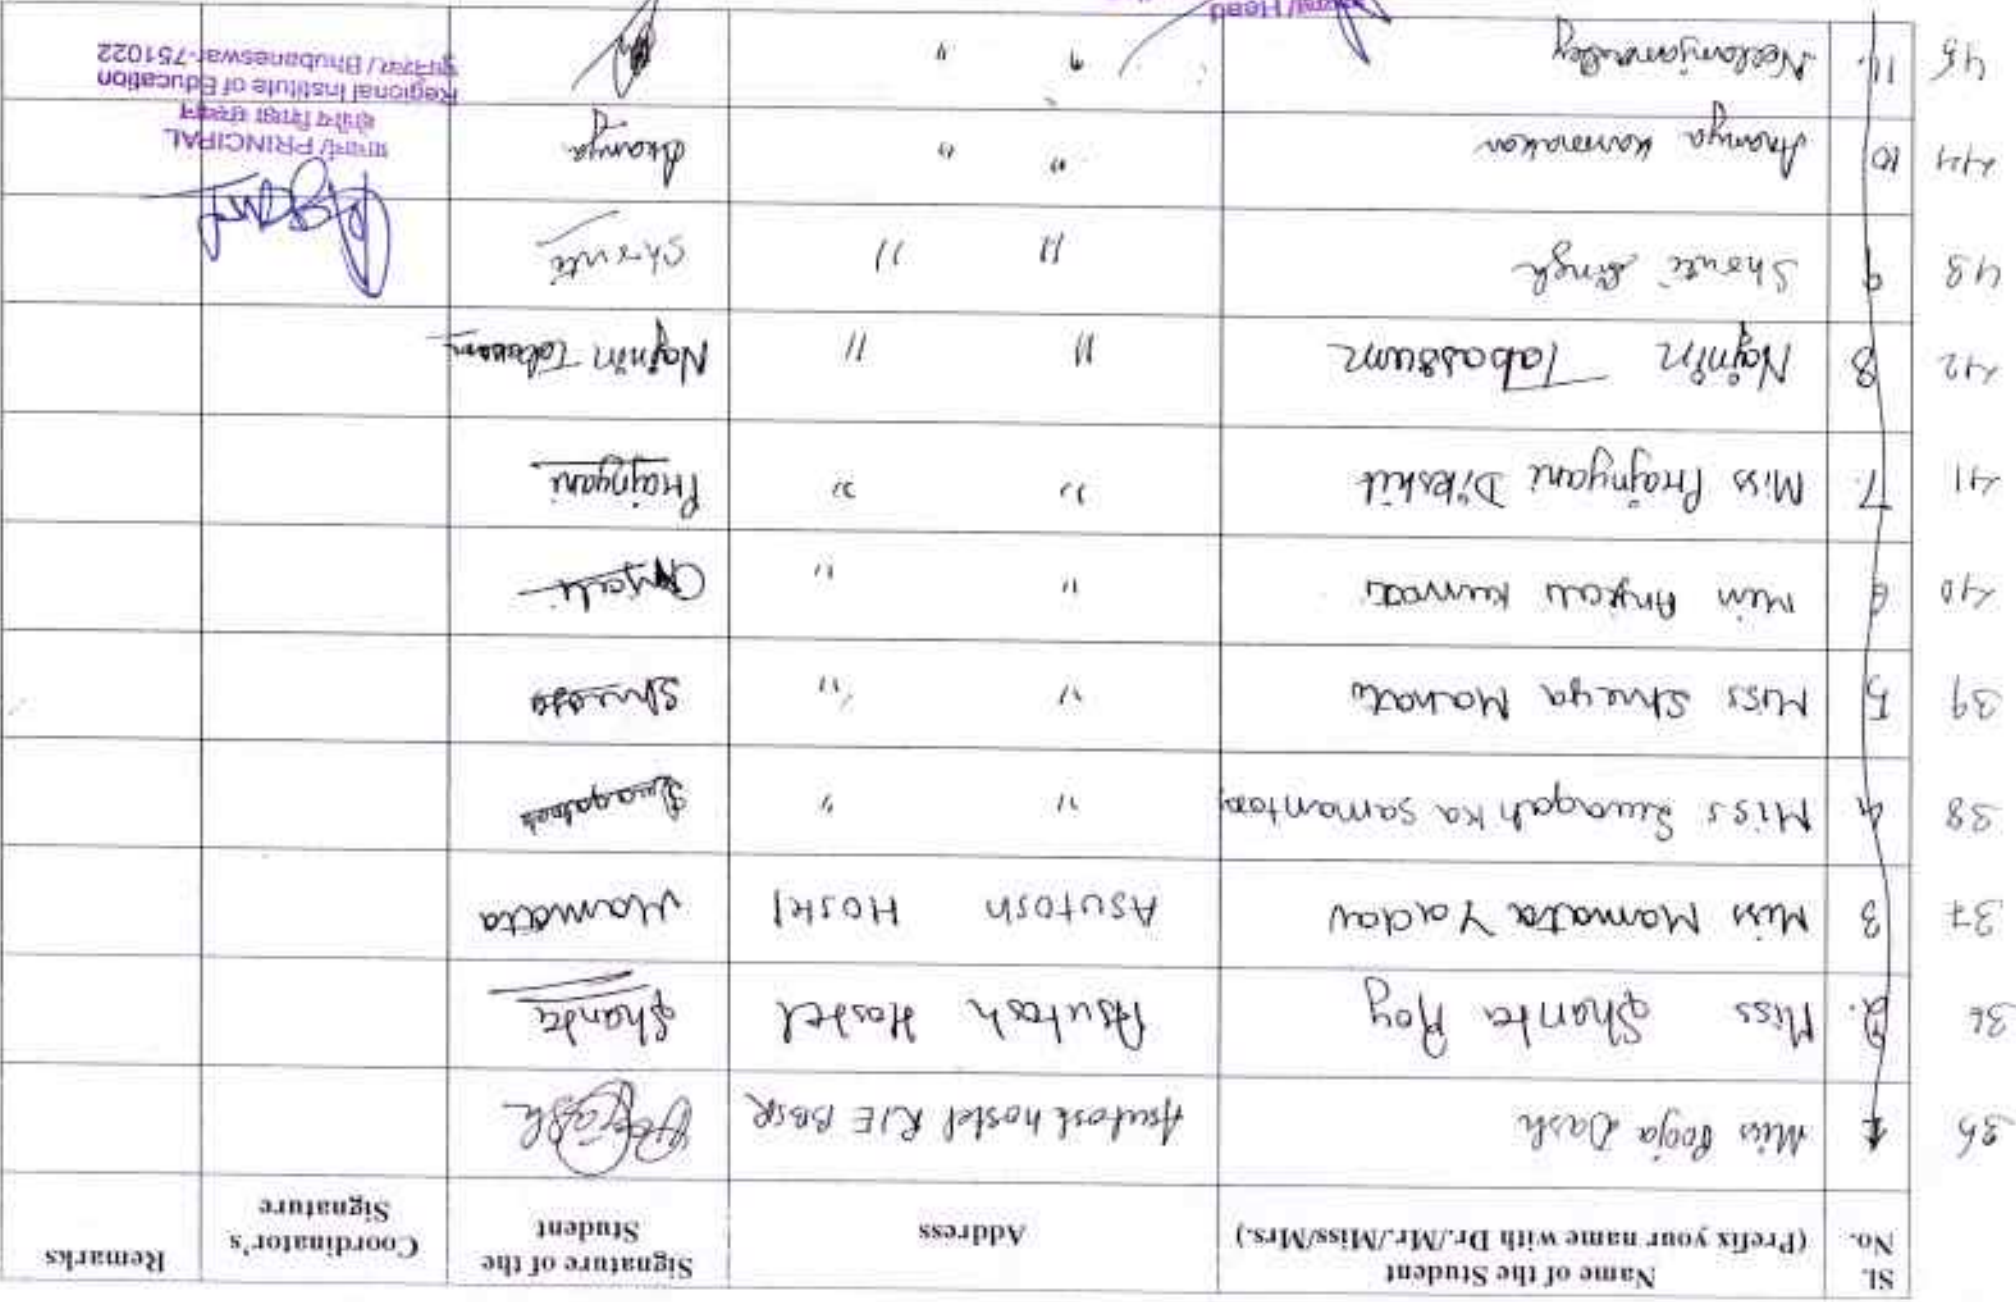 Sl. No. Name of the Student (Prefix your name with Dr./Mr./Miss/Mrs.) Address Signature of the Student Coordinator's Signature Remarks
35 1 Miss Pooja Dash Asutosh hostel RIE BBSR
36 2. Miss Shanta Roy Asutosh Hostel Shanta
37 3 Miss Mamata Yadav Asutosh Hostel Mamata
38 4 Miss Swagatika Samantaray " "
39 5 Miss Shreya Mahati " " Shreya
40 6 Miss Anjali Kumari " " Anjali
41 7. Miss Prajnyani Dikshit " " Prajnyani
42 8 Najnin Tabassum " " Najnin Tabassum
43 9 Shruti Singh " " Shruti
44 10 Ananya Karmakar " " Ananya
45 11. " "
प्राचार्य/ PRINCIPAL
क्षेत्रीय शिक्षा संस्थान
Regional Institute of Education
भुवनेश्वर/ Bhubaneswar-751022
/ Head